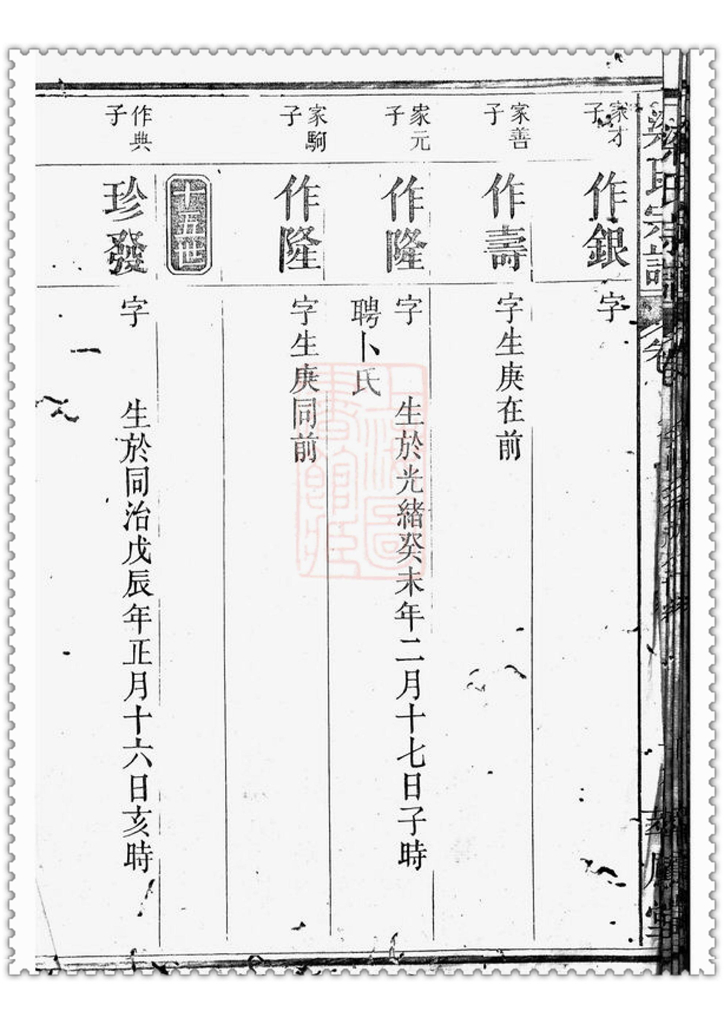 家才子
作銀
字
家善子
作壽
字生庚在前
家元子
作隆
字 生於光緒癸未年二月十七日子時
聘卜氏
家駒子
作隆
字生庚同前
十五世
作典子
珍發
字 生於同治戊辰年正月十六日亥時